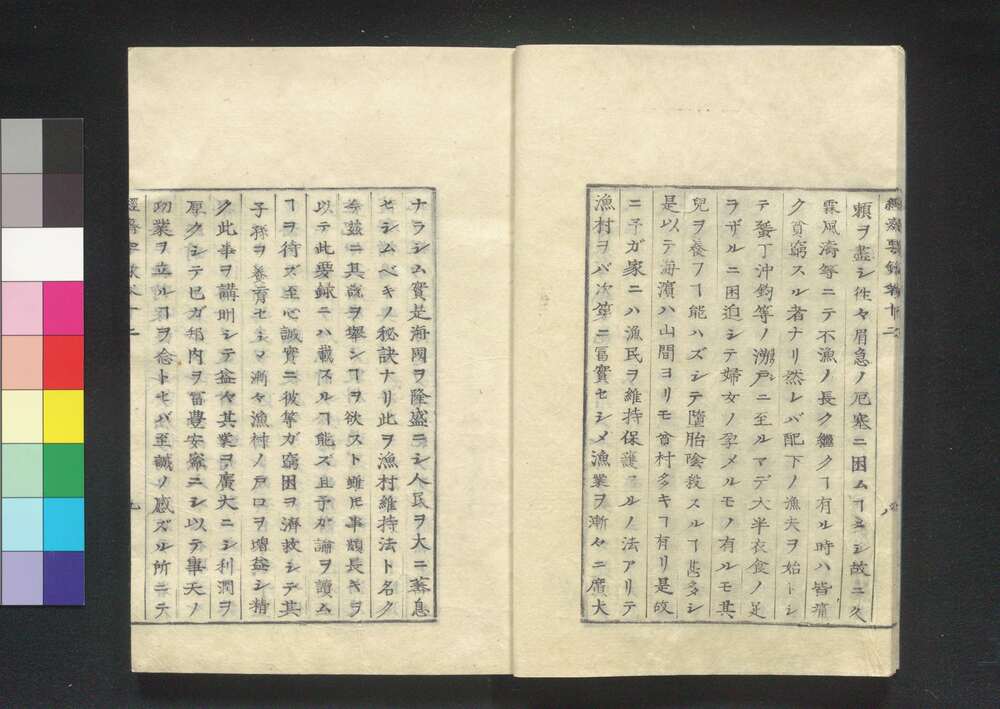 經濟要錄卷十二
賴ヲ盡シ往々眉急ノ厄塞ニ困ムヿ多シ故ニ久
霖風濤等ニテ不漁ノ長ク繼クヿ有ル時ハ皆痛
ク貧窮スル者ナリ然レバ配下ノ漁夫ヲ始トシ
テ蜑丁沖釣等ノ漁戸ニ至ルマデ大半衣食ノ足
ヲザルニ困迫シテ婦女ノ孕メルモノ有ルモ其
兒ヲ養フヿ能ハズシテ墮胎陰殺スルヿ甚多シ
是以テ海濱ハ山間ヨリモ貧村多キヿ有リ是故
ニ予ガ家ニハ漁民ヲ維持保護スルノ法アリテ
漁村ヲバ次第ニ冨實セシメ漁業ヲ漸々ニ廣大
ナラシム實是海國ヲ隆盛ニシ人民ヲ大ニ蕃息
セシムベキノ秘訣ナリ此ヲ漁村維持法ト名ク
今茲ニ其說ヲ擧ンヿヲ欲スト雖モ事頗長キヲ
以テ此要録ニハ載スルヿ能ズ且予ガ論ヲ讀ム
ヿヲ待ズ至心誠實ニ彼等ガ窮困ヲ濟救シテ其
子孫ヲ養育セシマ漸々漁村ノ戸口ヲ增益シ精
ク此事ヲ講明シテ益々其業ヲ廣大ニシ利潤ヲ
厚クシテ已ガ邦内ヲ冨豊安寧ニシ以テ事天ノ
功業ヲ立ルヿヲ念トセバ至誠ノ感ズル所ニテ
經濟要錄卷十二
九